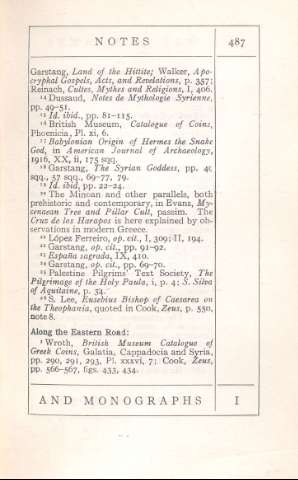 NOTES
487
Garstang, Land of the Hittite; Walker, Apo-
cryphal Gospels, Acts, and Revelations, p. 357;
Reinach, Cultes, Mythes and Religions, I, 406.
14 Dussaud, Notes de Mythologie Syrienne,
pp. 49-51.
15 Id. ibid., pp. 81-115.
16 British Museum, Catalogue of Coins,
Phoenicia, Pl. xi, 6.
17 Babylonian Origin of Hermes the Snake
God, in American Journal of Archaeology,
1916, XX, ii, 175 sqq.
18 Garstang, The Syrian Goddess, pp. 4
sqq., 37 sqq., 69-77, 79.
19 Id. ibid, pp. 22-24.
20 The Minoan and other parallels, both
prehistoric and contemporary, in Evans, My-
cenaean Tree and Pillar Cult, passim. The
Cruz de los Harapos is here explained by ob-
servations in modern Greece.
21 López Ferreiro, op. cit., I, 309; II, 194.
22 Garstang, op. cit., pp. 91-92.
23 España sagrada, IX, 410.
24 Garstang, op. cit., pp. 69-70.
25 Palestine Pilgrims' Text Society, The
Pilgrimage of the Holy Paula, i, p. 4; S. Silva
of Aquitaine, p. 34.
26 S. Lee, Eusebius Bishop of Caesarea on
the Theophania, quoted in Cook, Zeus, p. 550,
note 8.
Along the Eastern Road:
1 Wroth, British Museum Catalogue of
Greek Coins, Galatia, Cappadocia and Syria,
pp. 290, 291, 293, Pl. xxxvi, 7; Cook, Zeus,
pp. 566-567, figs. 433, 434.
AND MONOGRAPHS
I